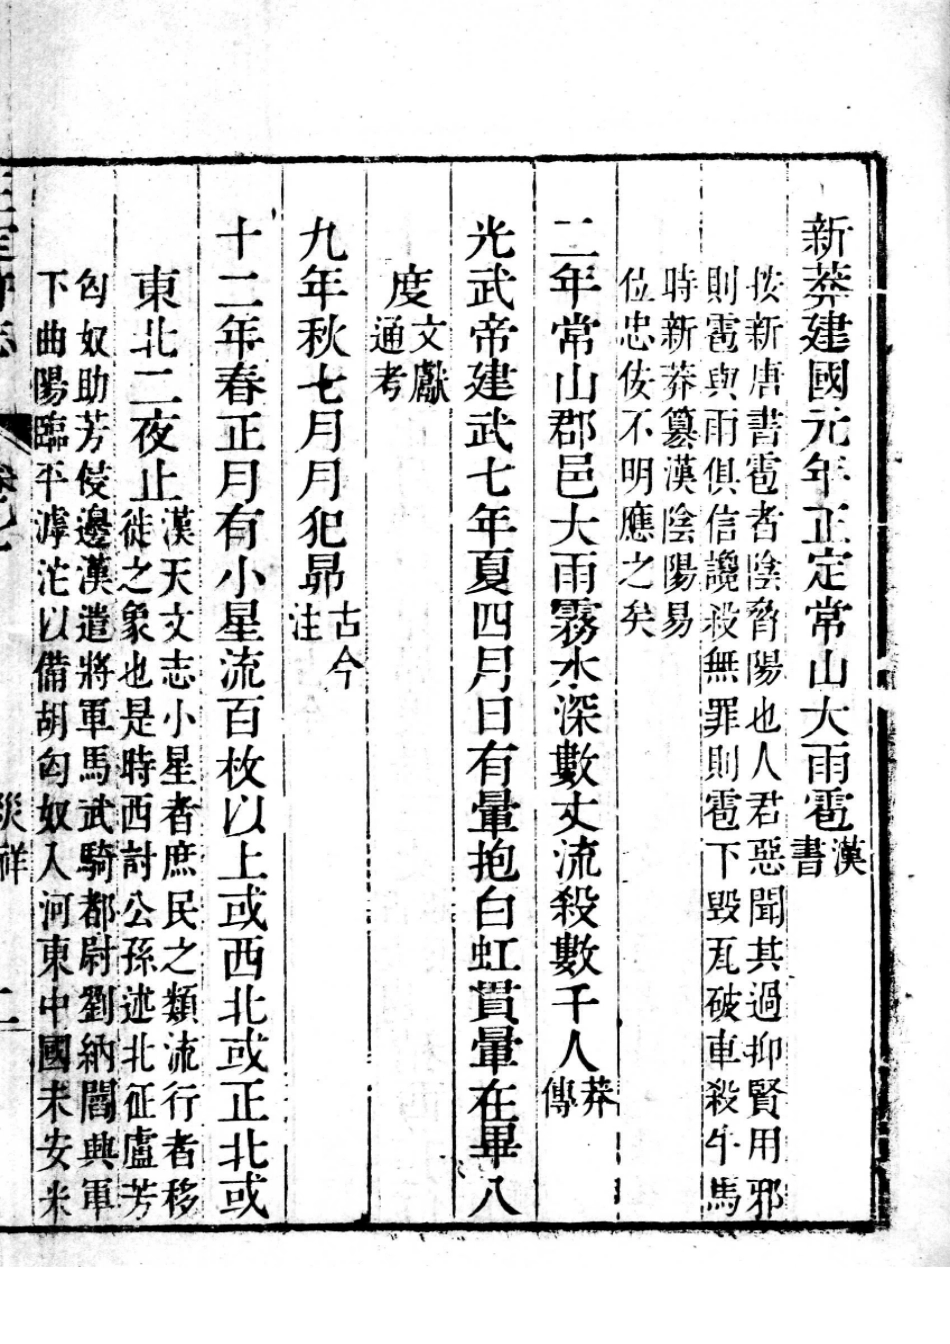 新莽建國元年正定常山大雨雹漢書
按新唐書雹者陰脅陽也人君惡聞其過抑賢用邪
則雹與雨俱信讒殺無罪則雹下毀瓦破車殺牛馬
時新莽簒漢陰陽易
位忠佞不明應之矣
二年常山郡邑大雨霧水深數丈流殺數千人莽傳
光武帝建武七年夏四月日有暈抱白虹貫暈在畢八
度文獻通考
九年秋七月月犯昴古今注
十二年春正月有小星流百枚以上或西北或正北或
東北二夜止漢天文志小星者庶民之類流行者移
徙之象也是時西討公孫述北征盧芳
匈奴助芳侵邊漢遣將軍馬武騎都尉劉納閻典軍
下曲陽臨平滹沱以備胡匈奴入河東中國未安米
正定府志
卷七
災祥
二